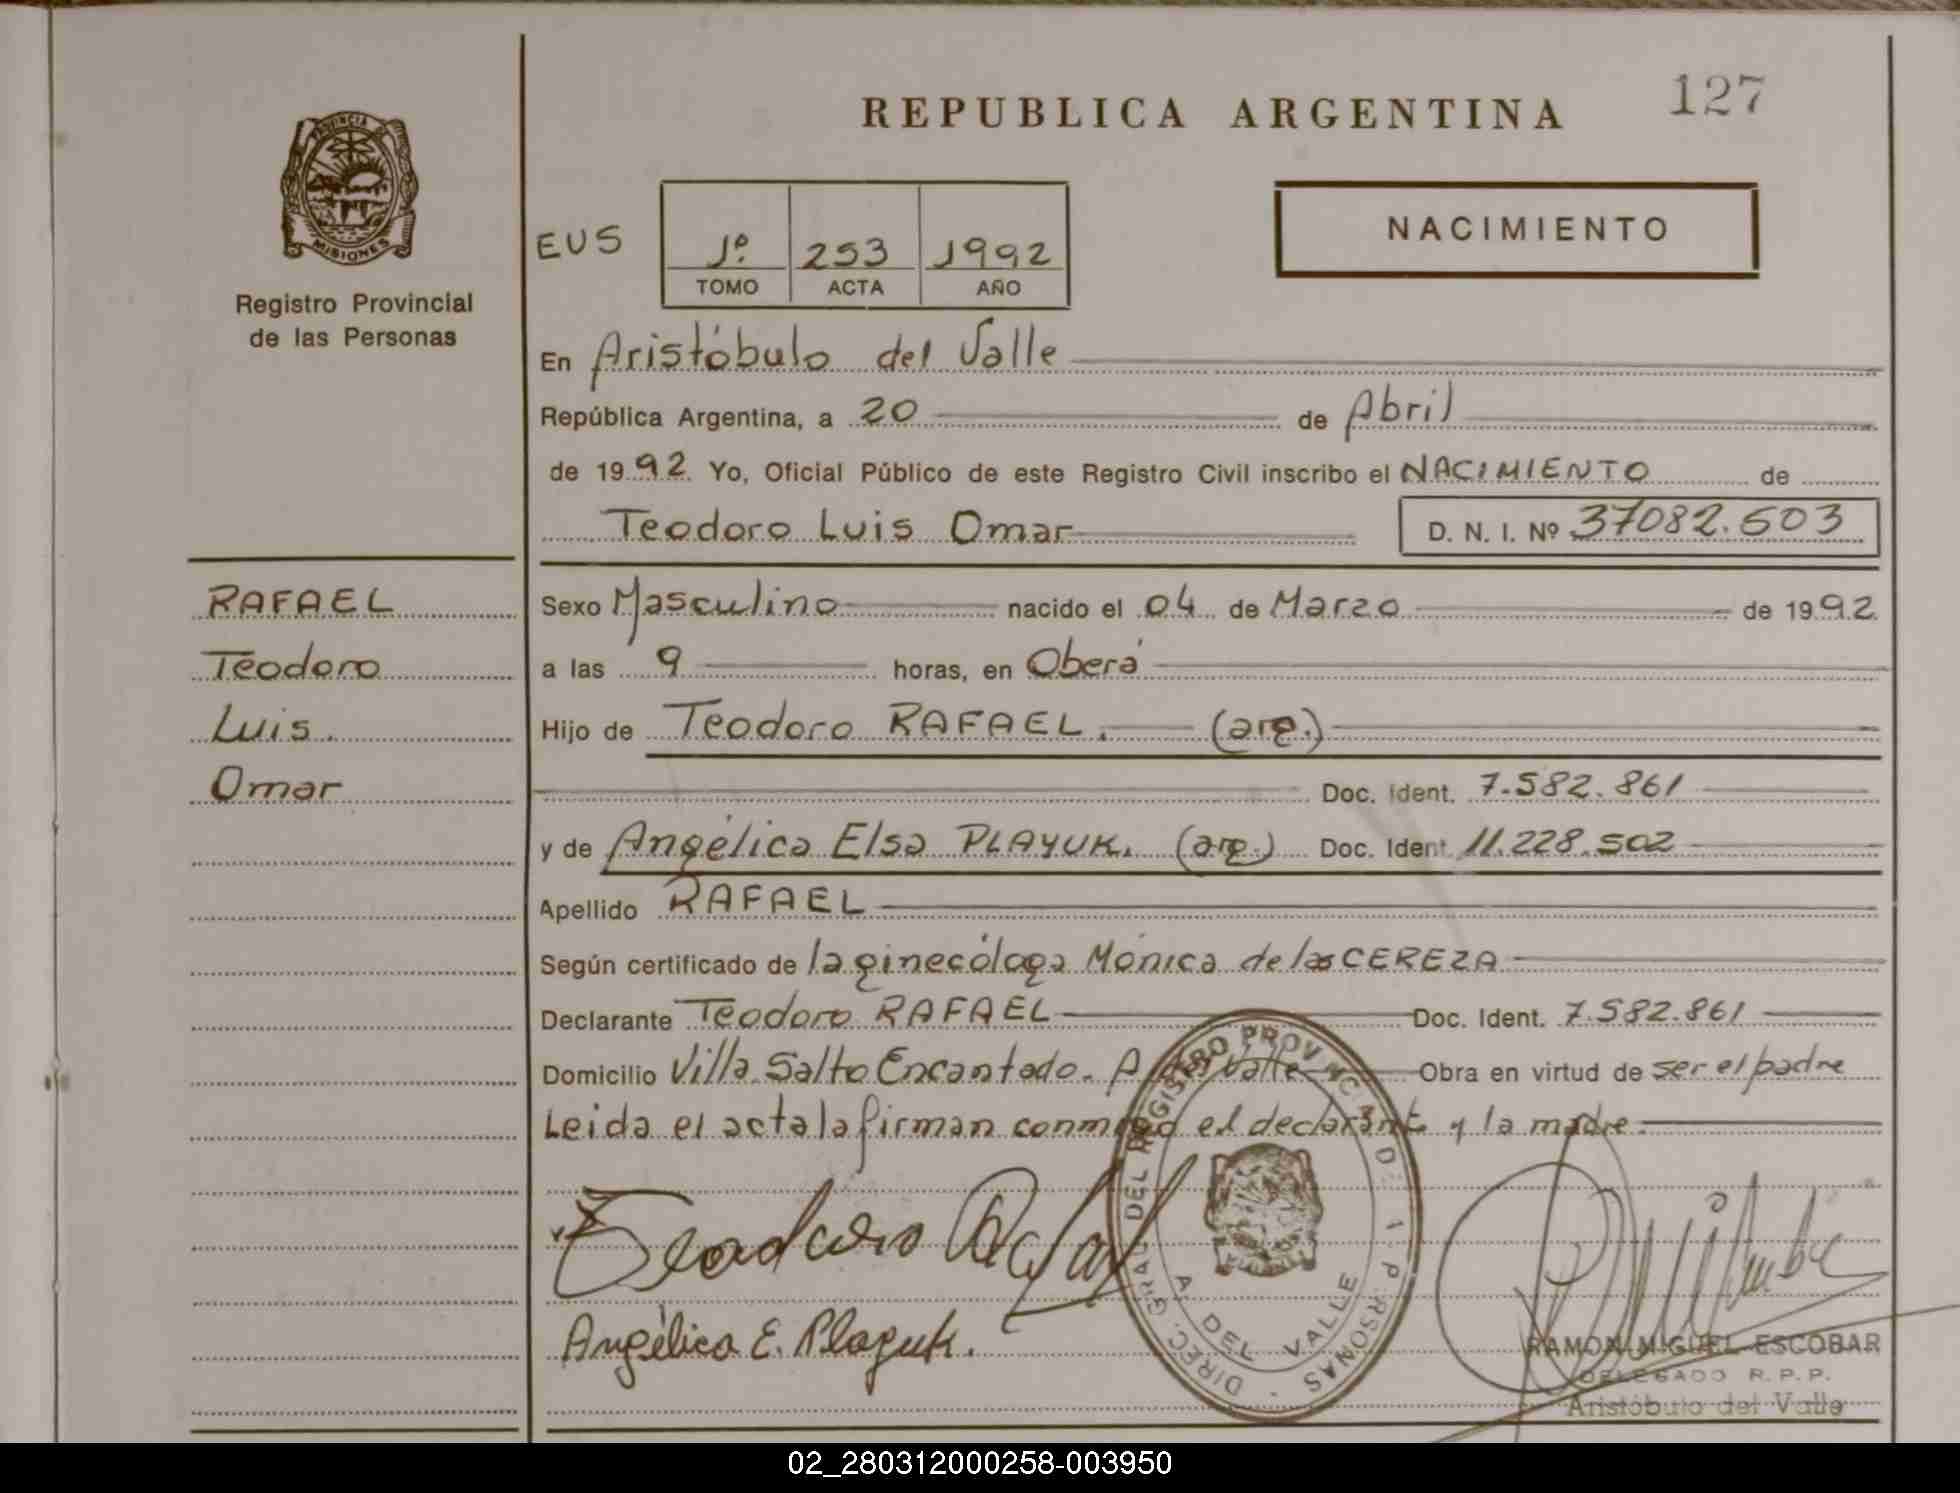 127
REPUBLICA ARGENTINA
PROVINCIA DE
MISIONES
Registro Provincial
de las Personas
NACIMIENTO
EUS
1º. 253 1992
TOMO ACTA AÑO
En Aristóbulo del Valle
República Argentina, a 20 de Abril
de 1992. Yo, Oficial Público de este Registro Civil inscribo el NACIMIENTO de
Teodoro Luis Omar D. N. I. Nº 37082.603
RAFAEL
Teodoro
Luis.
Omar
Sexo Masculino nacido el 04 de Marzo de 1992
a las 9 horas, en Oberá
Hijo de Teodoro RAFAEL. (arg.)
Doc. Ident. 7.582.861
y de Angélica Elsa PLAYUK. (arg.) Doc. Ident. 11.228.502
Apellido RAFAEL
Según certificado de la ginecóloga Mónica de las CEREZA
Declarante Teodoro RAFAEL Doc. Ident. 7.582.861
Domicilio Villa Salto Encantado. A. del Valle Obra en virtud de ser el padre
Leida el acta la firman conmigo el declarante y la madre.
Teodoro Rafael
Angélica E. Playuk.
DIREC. GRAL. DEL REGISTRO PROVINCIAL DE LAS PERSONAS
A. DEL VALLE
RAMON MIGUEL ESCOBAR
DELEGADO R. P. P.
Aristóbulo del Valle
02_280312000258-003950